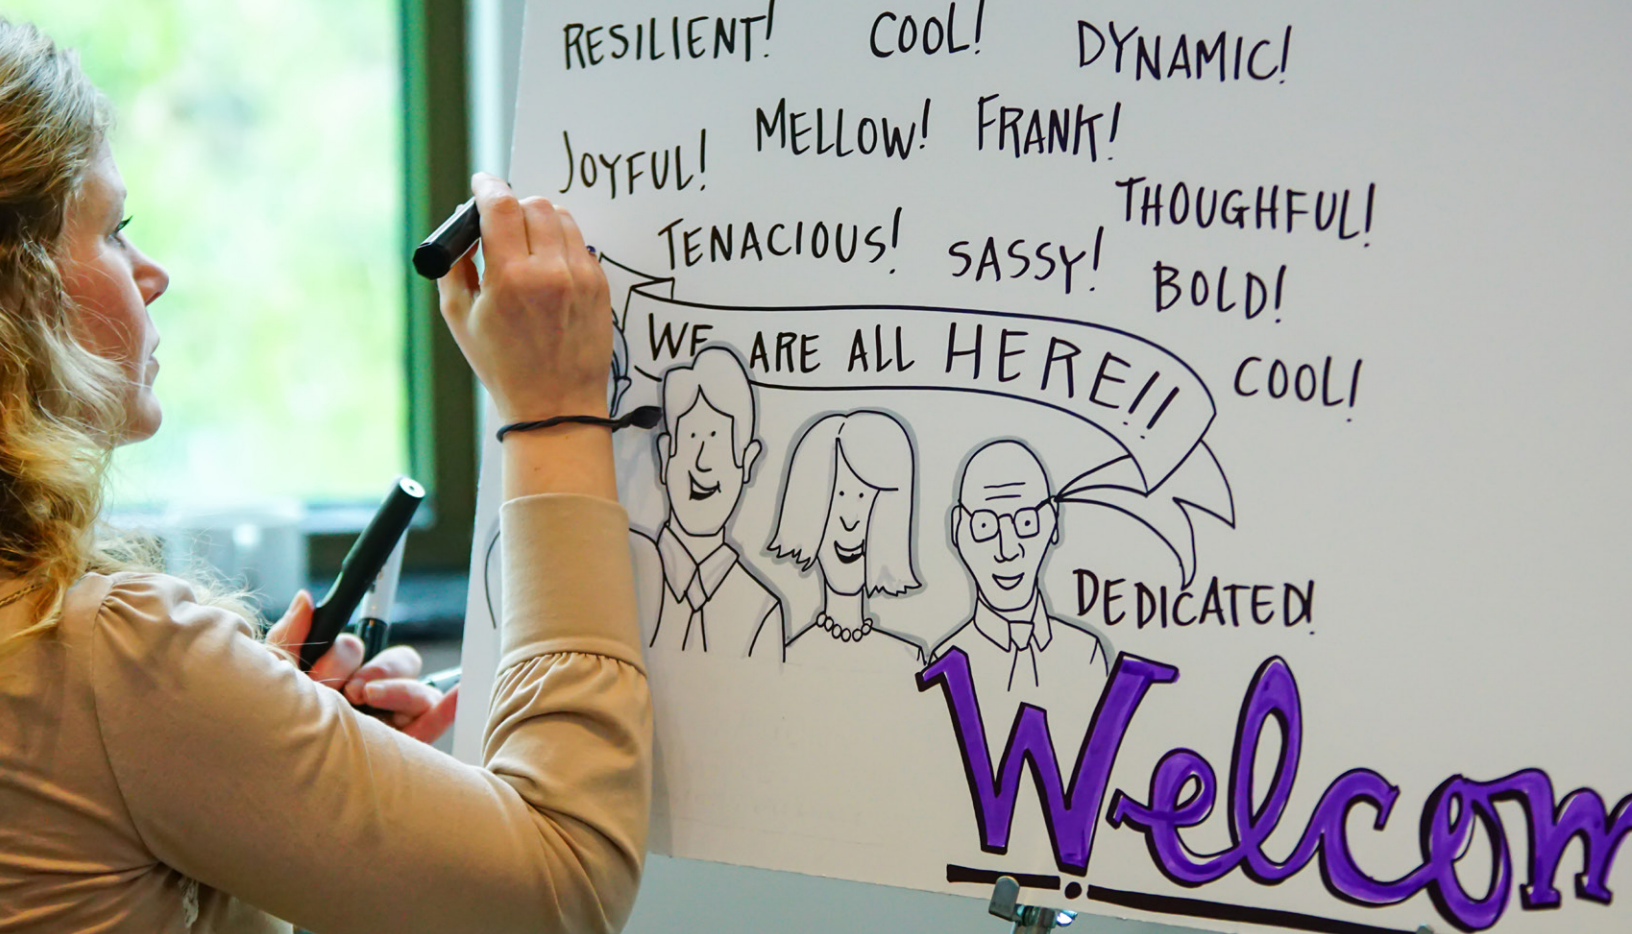 RESILIENT! COOL! DYNAMIC!
MELLOW! FRANK!
JOYFUL!
THOUGHFUL!
TENACIOUS! SASSY!
BOLD!
WE ARE ALL HERE!!
COOL!
DEDICATED!
Welcom